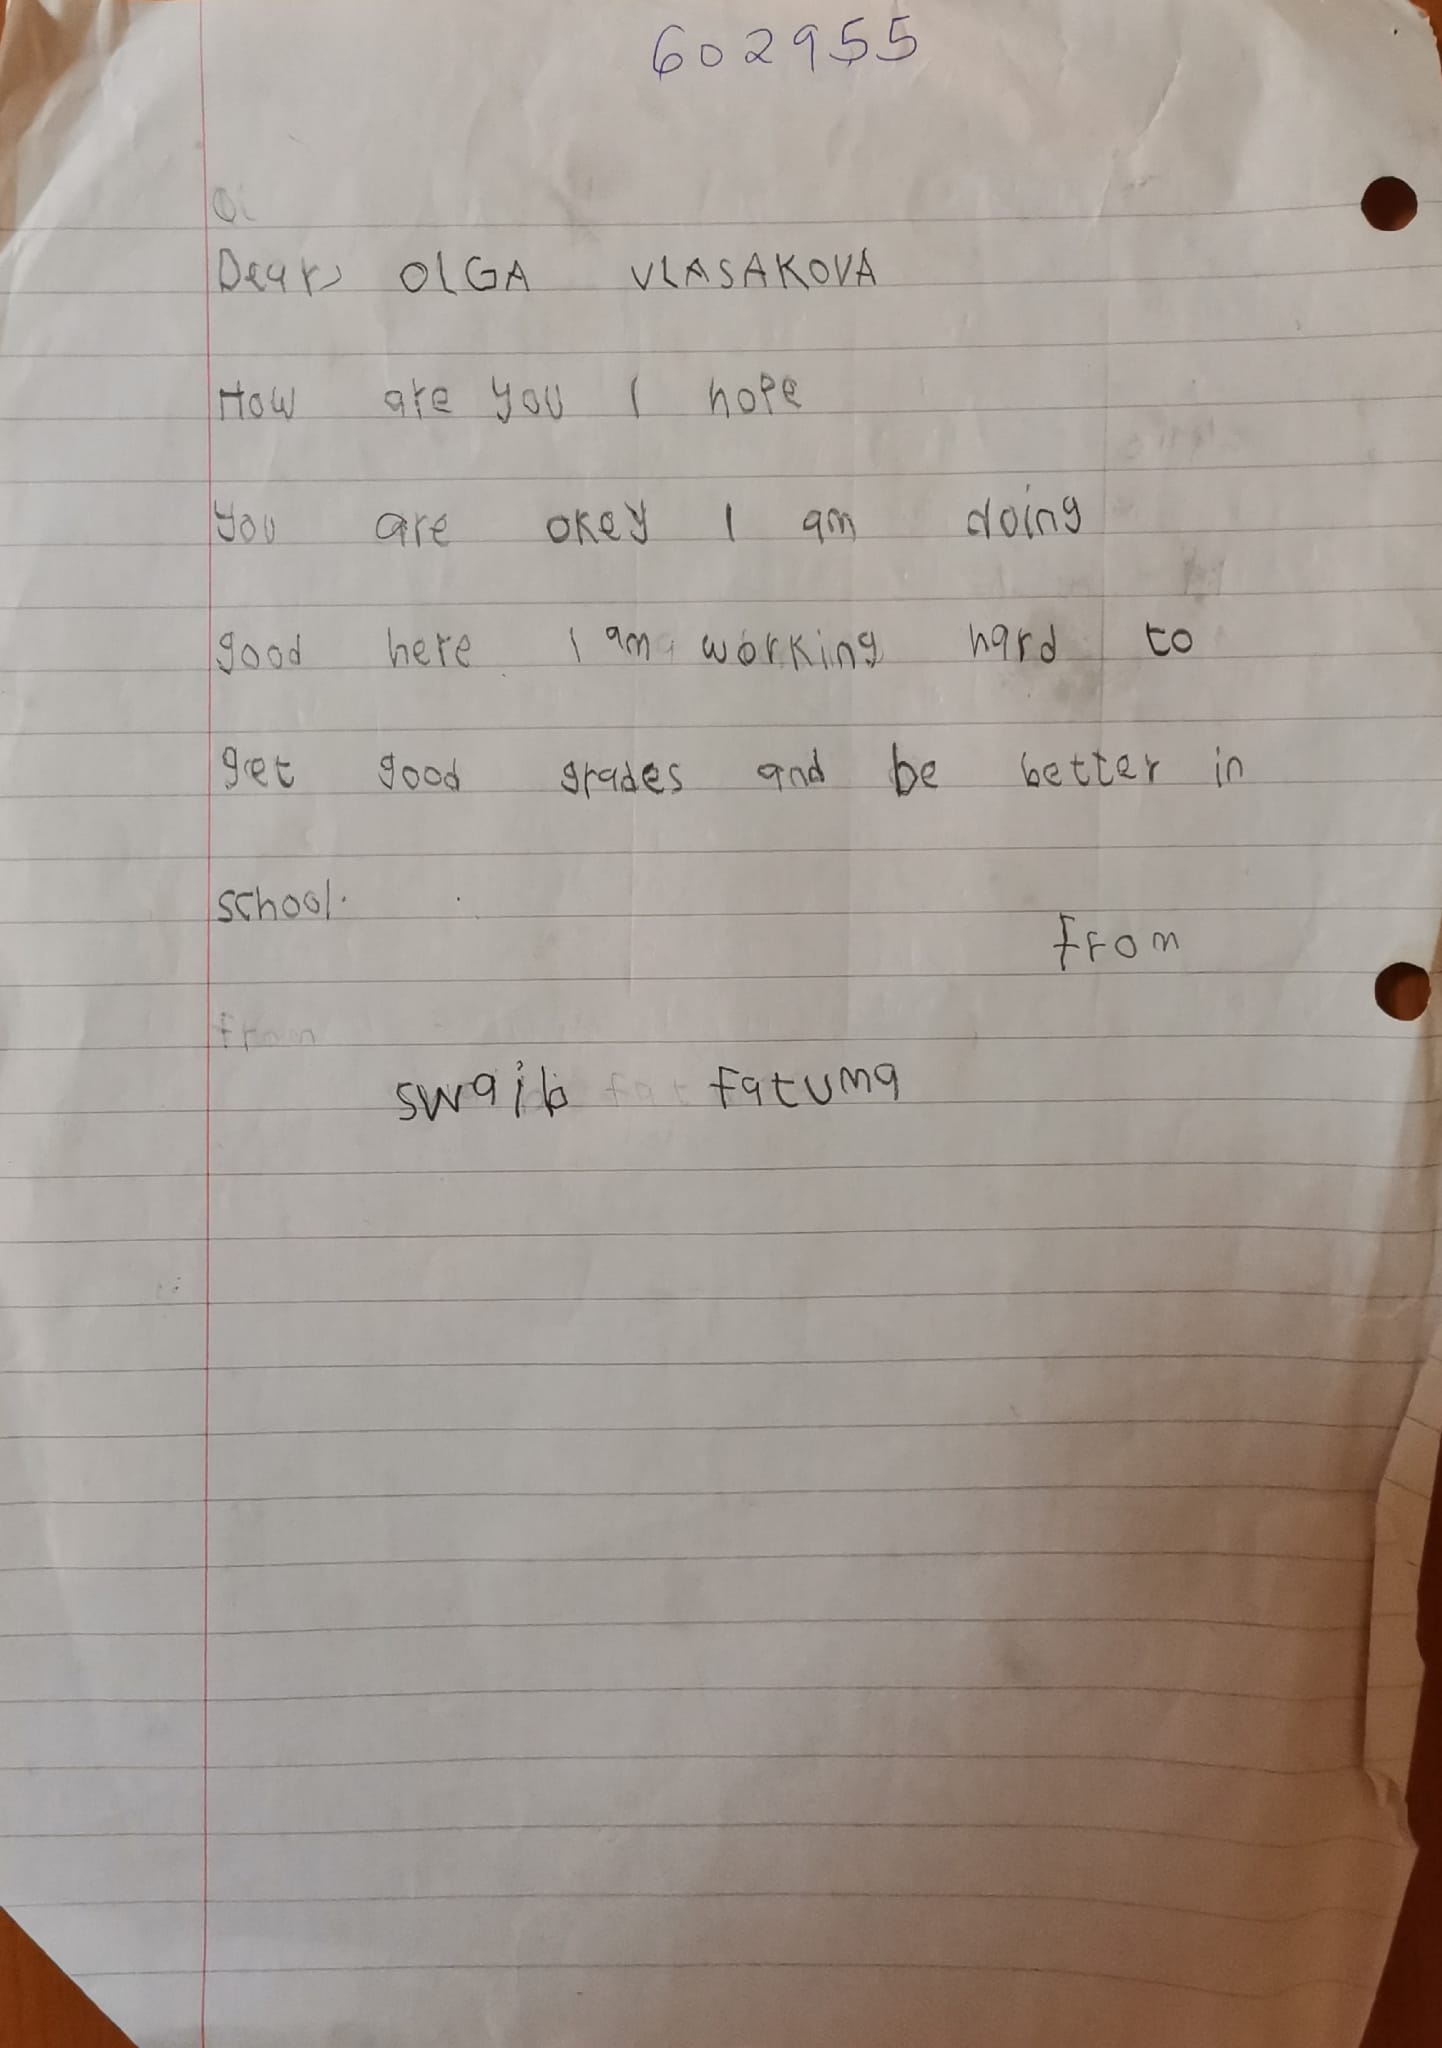 602955
Dear OLGA VLASAKOVA
How are you I hope
you are okey I am doing
good here I am working hard to
get good grades and be better in
school.
From
from
swaib Fatuma